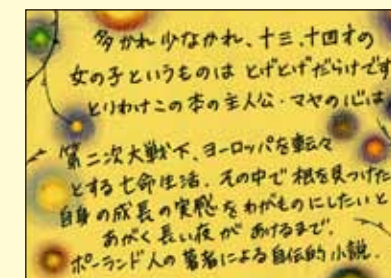 多かれ少なかれ、十三、十四才の
女の子というものは とげとげだらけです
とりわけこの本の主人公・マヤの心は
第二次大戦下、ヨーロッパを転々
とする亡命生活、その中で 根を見つけた
自身の成長の実感をわがものにしたいと
あがく長い夜が あけるまで。
ポーランド人の著者による自伝的小説。